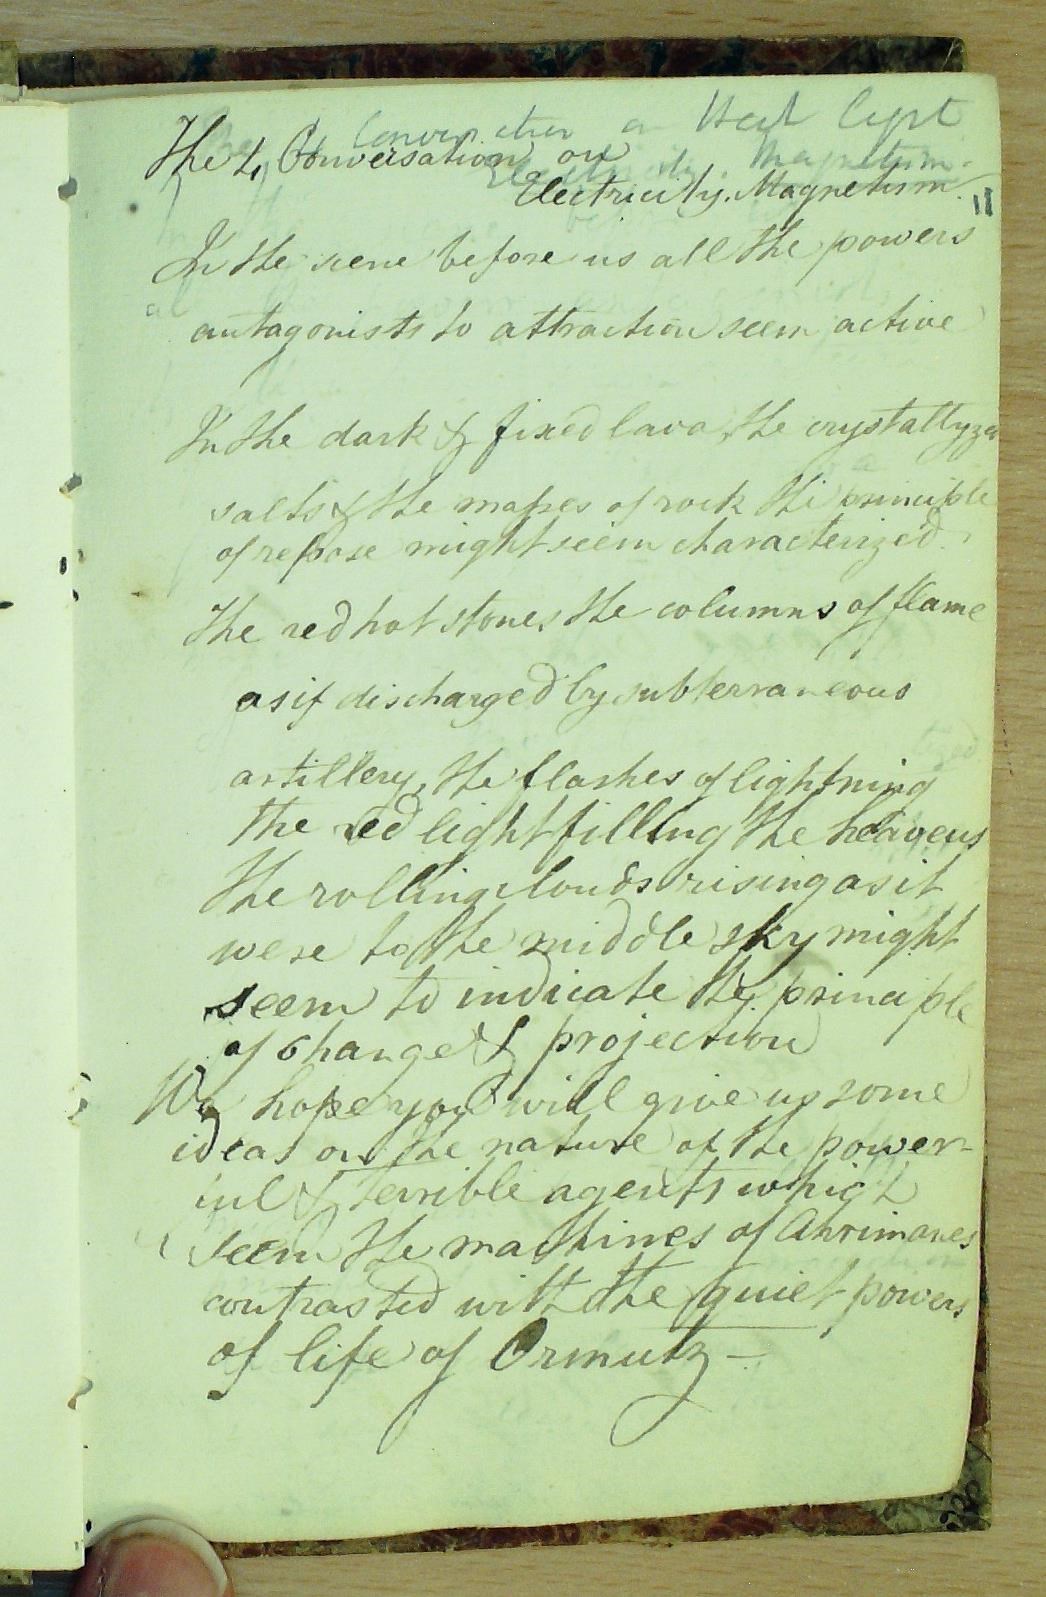 Conversation on Heat Light
The 4 Conversation on
Electricity. Magnetism.
Electricity. Magnetism.
11
In the scene before us all the powers
antagonists to attraction seem active
In the dark & fixed lava, the crystallyzed
salts & the masses of rock the principle
of repose might seem characterized.
The red hot stones the columns of flame
as if discharged by subterraneous
artillery, the flashes of lightning
the red light filling the heavens
the rolling clouds rising as it
were to the middle sky might
seem to indicate the principle
of change & projection
We hope you will give us some
ideas on the nature of the power-
ful & terrible agents which
seem the machines of Ahrimanes
contrasted with the quiet powers
of life of Ormutz -